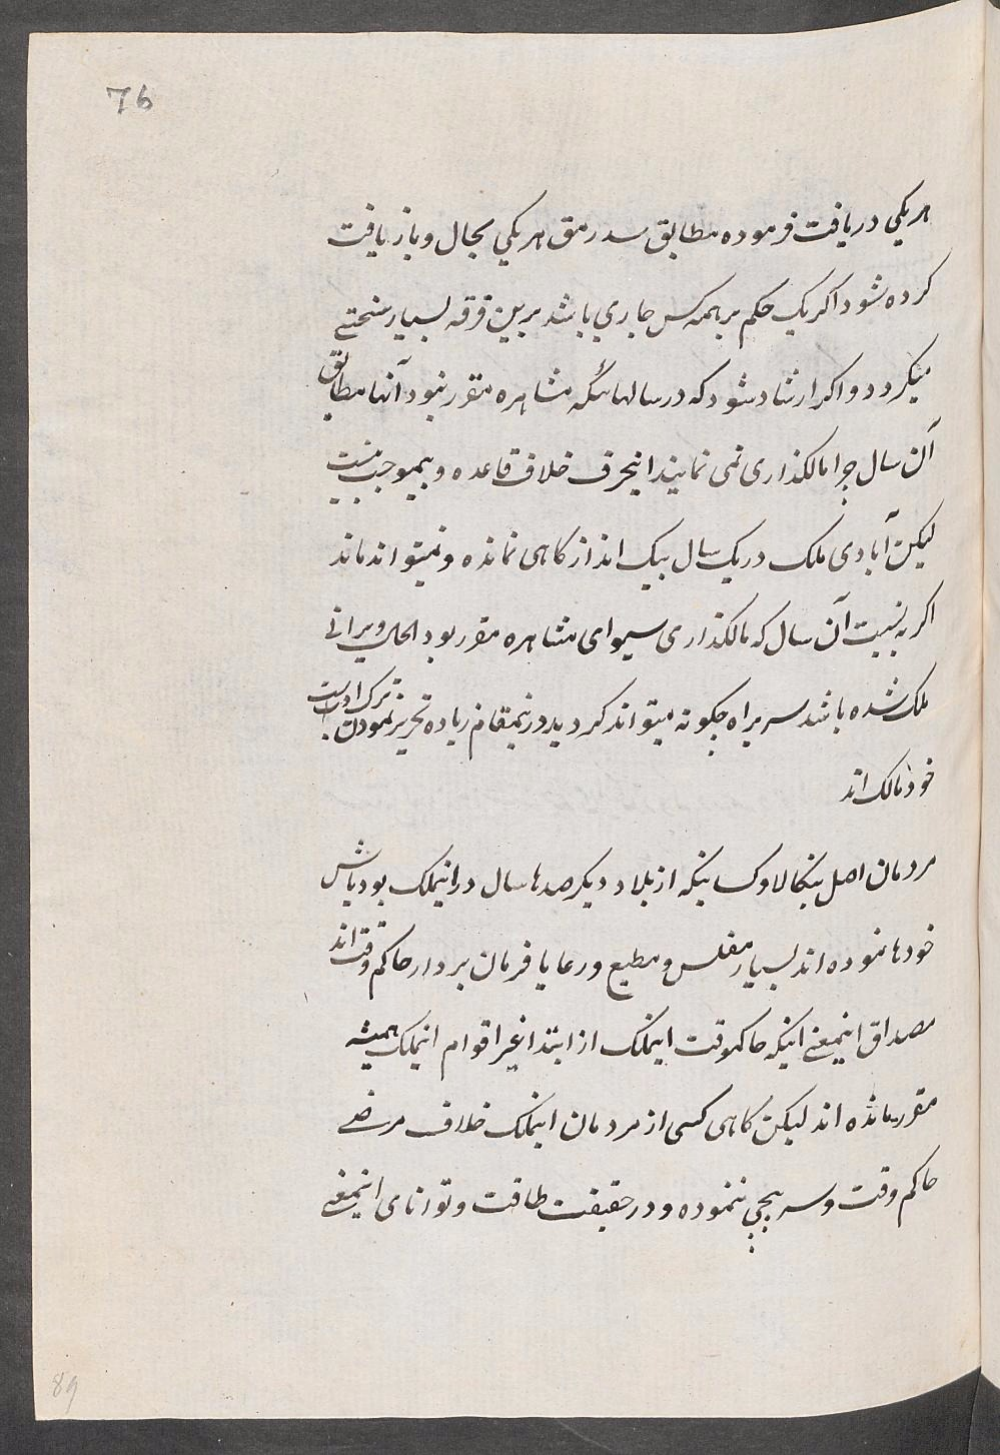 76
هریکی دریافت فرموده مطابق سد رمق هریکی بحال و بازیافت
کرده شود اکر یک حکم بر همه کس جاری باشد برین فرقه بسیار سختے
میکردد و اکر ارشاد شود که در سالهائیکه مشاهره مقرر نبود آنها مطابق
آن سال چرا مالکذاری نمی نمایند اینحرف خلاف قاعده و بیموجب نیست
لیکن آبادی ملک در یک سال بیک انداز کاهی نمانده و نمیتواند ماند
اکر به نسبت آن سال که مالکذاری سیوای مشاهره مقرر بود الحال ویرانے
ملک شده باشد سربراه چکونه میتواند کردید درینمقام زیاده تحریر نمودن ترک ادبست
خود مالک اند
مردمان اصل بنکالا و کسانیکه از بلاد دیکر صدها سال درانیملک بودباش
خودها نموده اند بسیار مفلس و مطیع و رعایا فرمان بردار حاکم وقت اند
مصداق اینمعنے اینکه حاکموقت اینملک از ابتدا غیر اقوام انیملک همیشه
مقرر مانده اند لیکن کاهی کسی از مردمان اینملک خلاف مرضے
حاکم وقت و سرپیچی ننموده و در حقیقت طاقت و توانای اینمعنے
89